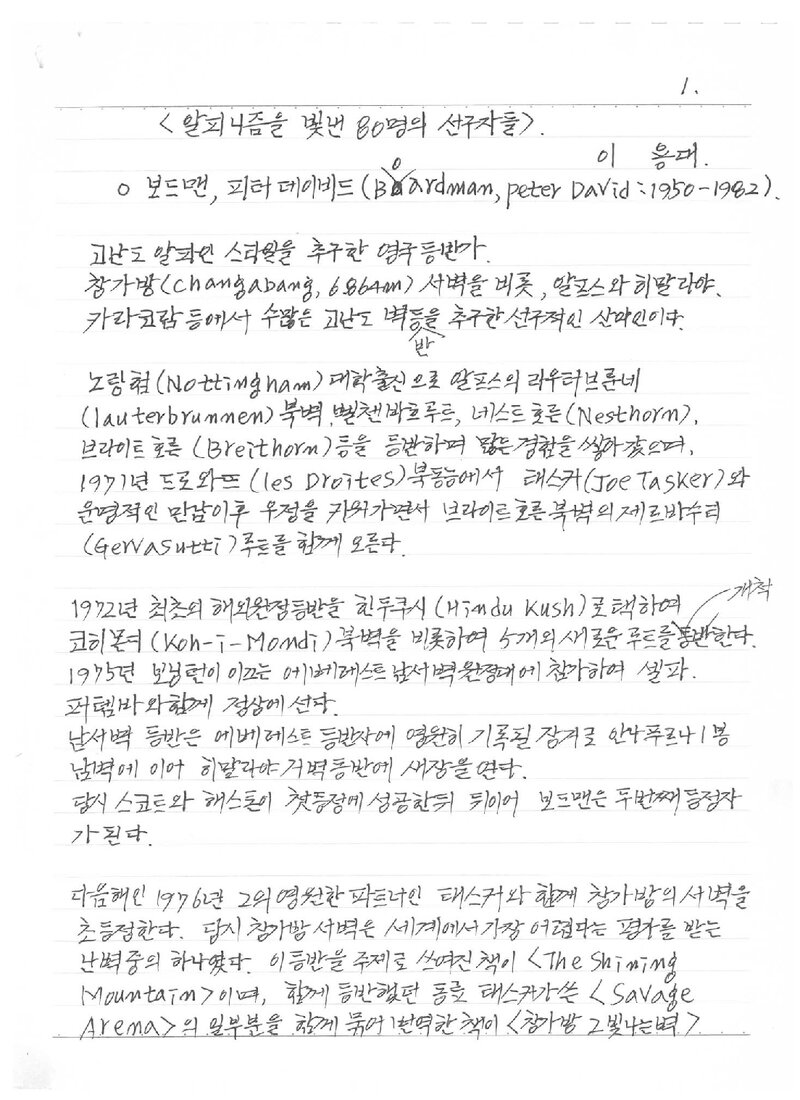 1.
< 알피니즘을 빛낸 80명의 선구자들>.
이 용대.
o 보드맨, 피터 데이비드 (Boardman, peter David : 1950-1982).
고난도 알파인 스타일을 추구한 영국등반가.
창가방(Changabang, 6864m) 서벽을 비롯, 알프스와 히말라야.
카라코람 등에서 수많은 고난도 벽등반을 추구한 선구적인 산악인이다.
노팅험(Nottingham) 대학출신으로 알프스의 라우터브룬네
(lauterbrunnen) 북벽, 벨첸바흐루트, 네스트호른(Nesthorn),
브라이트호른 (Breithorn)등을 등반하며 많은 경험을 쌓아 갔으며,
1971년 드로와뜨 (les Droites)북동릉에서 태스커(Joe Tasker)와
운명적인 만남이후 우정을 키워가면서 브라이트호른 북벽의 제르바수티
(Gervasutti)루트를 함께 오른다.
개척
1972년 최초의 해외원정등반을 힌두쿠시 (Hindu Kush)로 택하여
코히몬디 (Koh-i-Mondi) 북벽을 비롯하여 5개의 새로운 루트를 등반한다.
1975년 보닝턴이 이끄는 에베레스트 남서벽원정대에 참가하여 셀파.
퍼템바와 함께 정상에 선다.
남서벽 등반은 에베레스트 등반사에 영원히 기록될 장거로 안나푸르나 1봉
남벽에 이어 히말라야 거벽등반에 새장을 연다.
당시 스코트와 해스톤이 첫등정에 성공한뒤 뒤이어 보드맨은 두번째 등정자
가 된다.
다음해인 1976년 그의 영원한 파트너인 태스커와 함께 창가방의 서벽을
초등정한다. 당시 창가방 서벽은 세계에서 가장 어렵다는 평가를 받는
난벽중의 하나였다. 이등반을 주제로 쓰여진 책이 <The Shining
Mountain>이며, 함께 등반했던 동료 태스커가 쓴 <Savage
Arena>의 일부분을 함께 묶어 번역한 책이 <창가방 그 빛나는 벽>